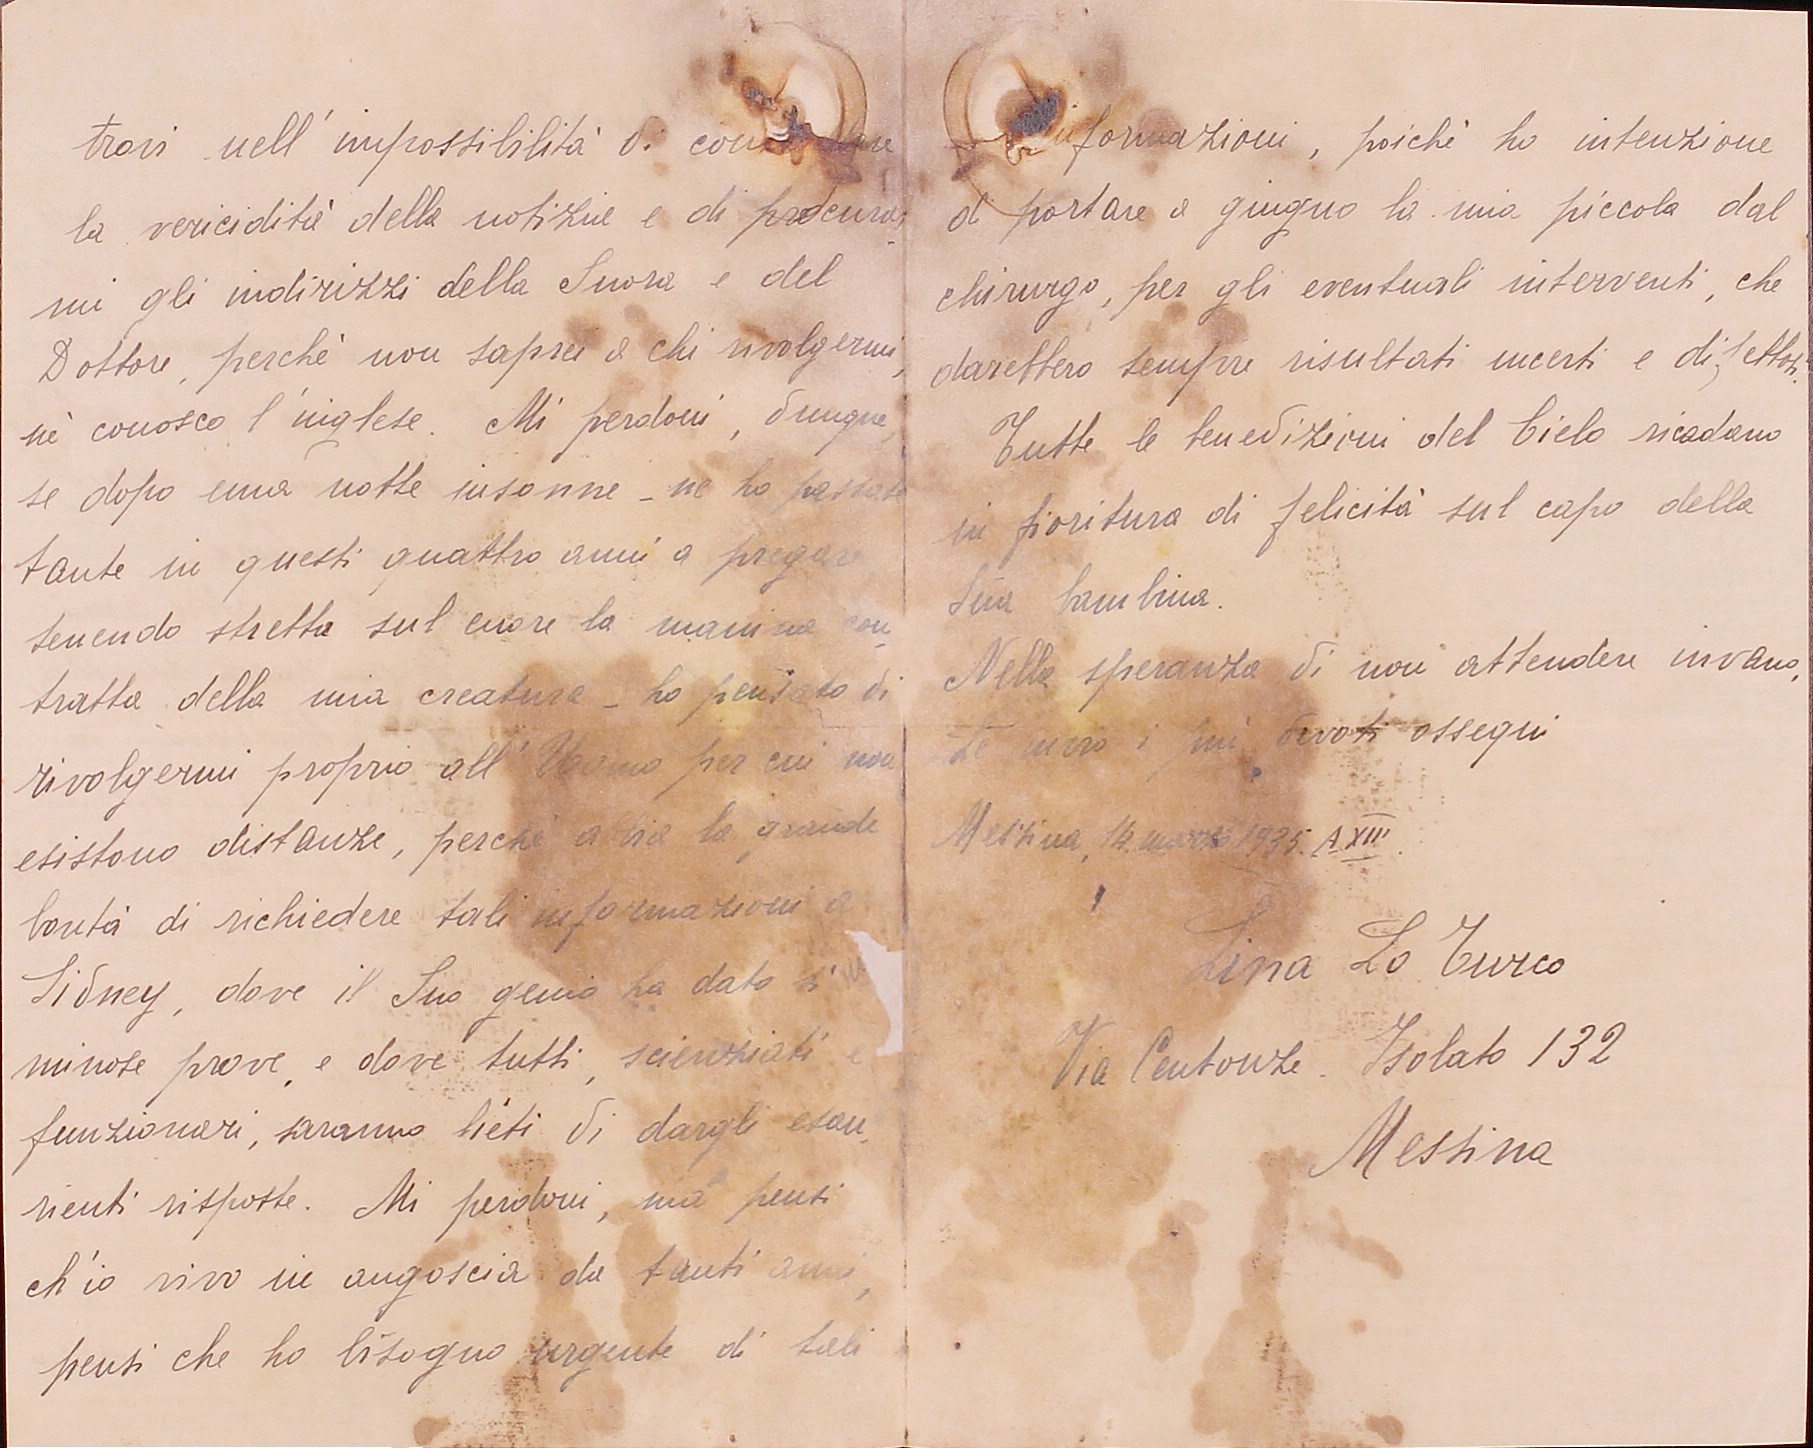 trovi nell'impossibilità di
la vericidità della notizia e di procurar-
mi gli indirizzi della Suora e del
Dottore, perchè non saprei a chi rivolgermi,
nè conosco l'inglese. Mi perdoni, dunque,
se dopo una notte insonne - ne ho passate
tante in questi quattro anni a pregare
tenendo stretta sul cuore la manina con-
tratta della mia creatura - ho pensato di
rivolgermi proprio all'Uomo per cui non
esistono distanze, perchè abbia la grande
bontà di richiedere tali informazioni a
Sidney, dove il Suo genio ha dato
minose prove, e dove tutti, scienziati e
funzionari, saranno lieti di dargli esau-
rienti risposte. Mi perdoni, ma pensi
ch'io vivo in angoscia da tanti anni,
pensi che ho bisogno urgente di tali
informazioni, poichè ho intenzione
di portare a giugno la mia piccola dal
chirurgo, per gli eventuali interventi, che
darebbero sempre risultati incerti e difettosi.
Tutte le benedizioni del Cielo ricadano
in fioritura di felicità sul capo della
Sua bambina.
Nella speranza di non attendere invano,
Le invio i più devoti ossequi
Messina, 14 marzo 1935. A XIII.
Lina Lo Turco
Via Centonze. Isolato 132
Messina